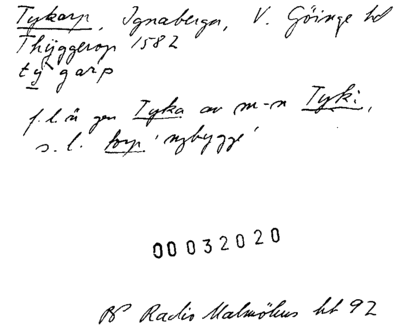 Tykarp, Ignaberga, V. Göinge hd
Thyggerop 1582
tỳgarp
f.l. ä gen Tyka av m-n Tyki,
s.l. torp 'nybygge'
00 032020
BP Radio Malmöhus ht 92